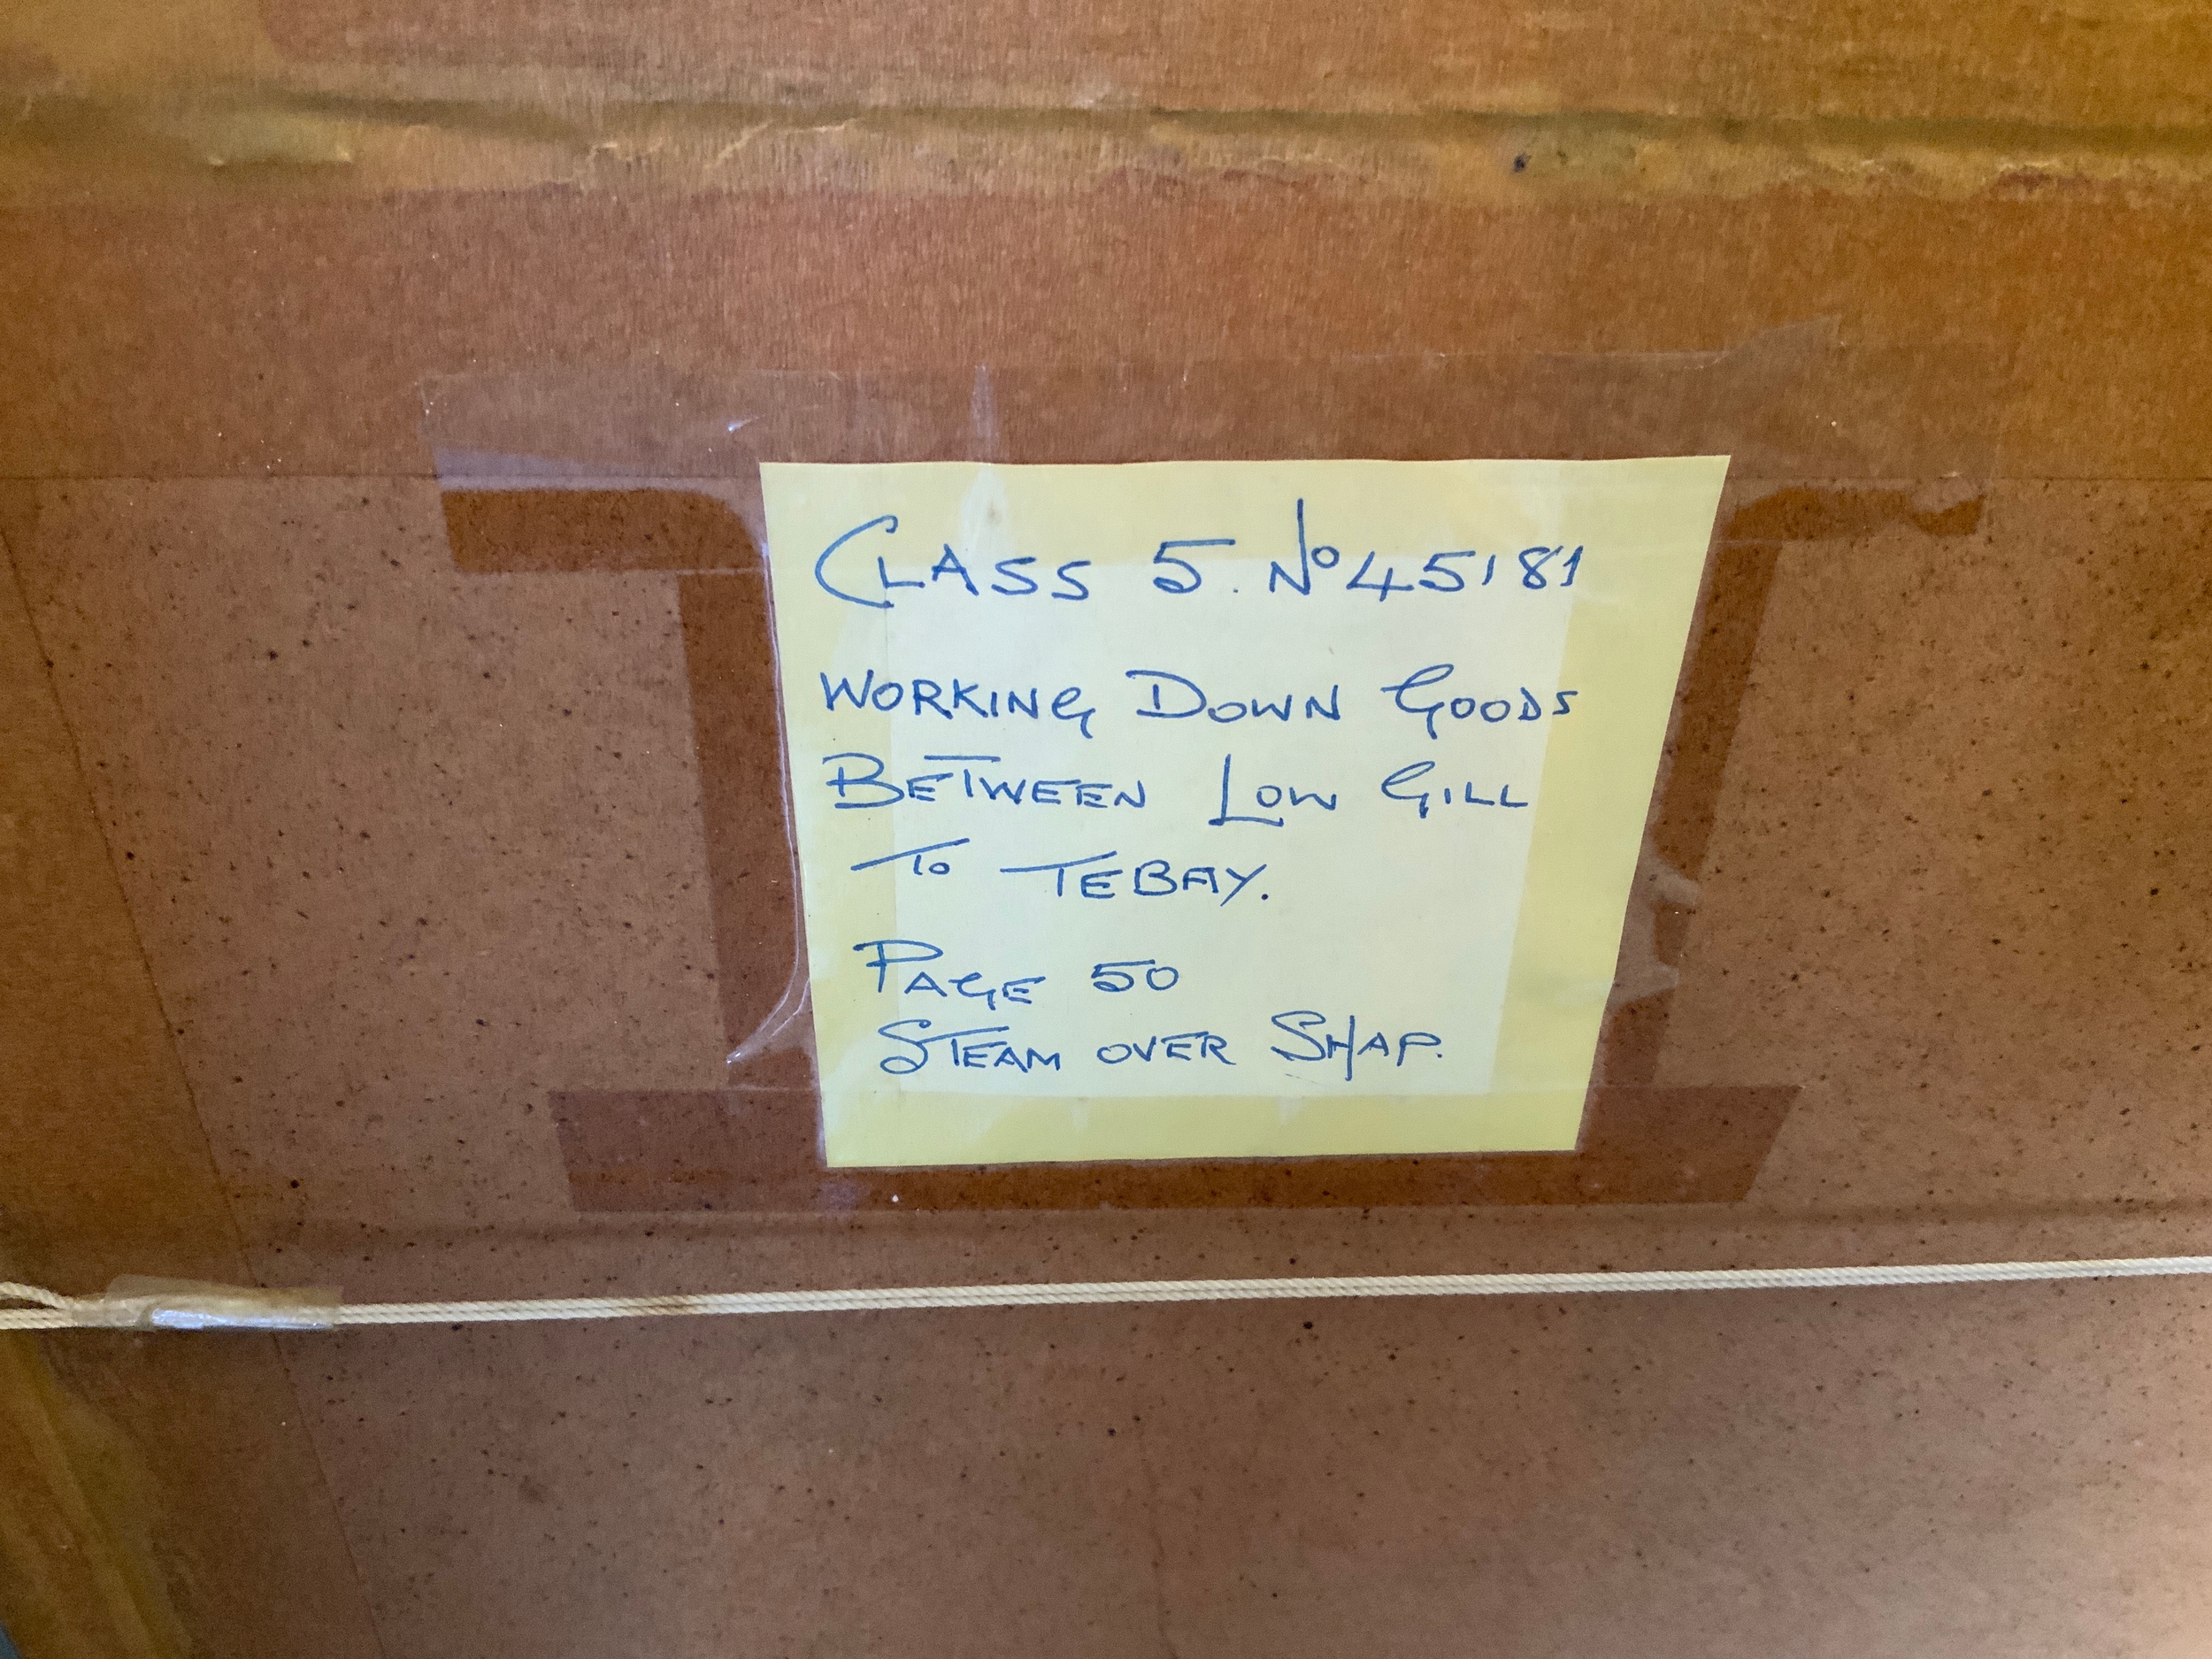 CLASS 5. No 45181
WORKING DOWN GOODS
BETWEEN LOW GILL
TO TEBAY.
PAGE 50
STEAM OVER SHAP.